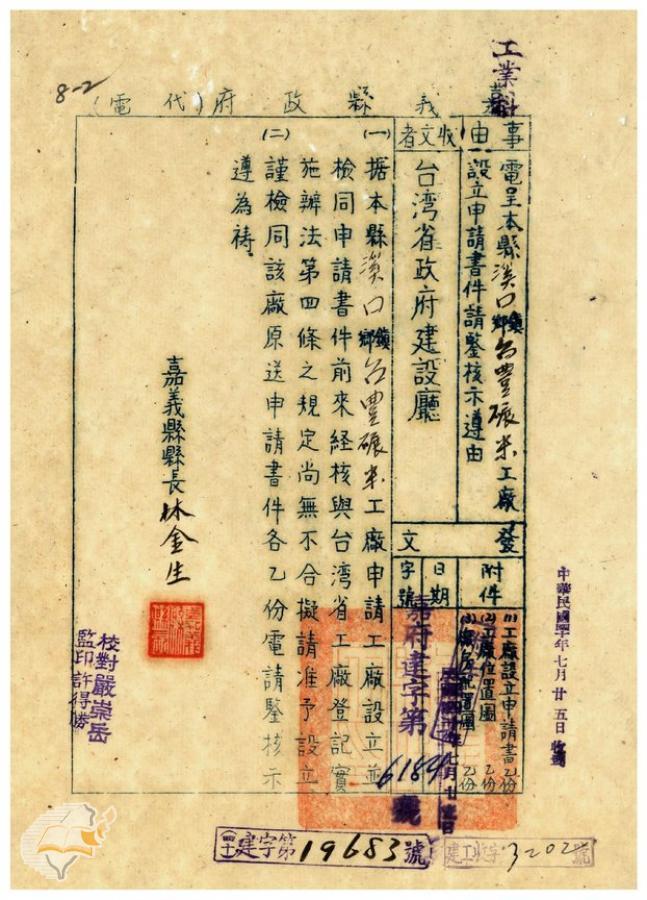 工業科
8-2
嘉義縣政府(代電)
事由
電呈本縣溪口鄉鎮台豐碾米工廠
設立申請書件請鑒核示遵由
收文者
台湾省政府建設廳
發文
附件
(1)工廠設立申請書乙份
(2)工廠位置圖乙份
(3)機器配置圖乙份
日期
字號
嘉府建字第6184號
(一)據本縣溪口鄉鎮台豐碾米工廠申請工廠設立並
檢同申請書件前來経核與台湾省工廠登記實
施辦法第四條之規定尚無不合擬請准予設立
(二)謹檢同該廠原送申請書件各乙份電請鑒核示
遵為禱
嘉義縣縣長林金生
校對嚴崇岳
監印許得勝
中華民國 年七月廿五日收到
(四十)建字第19683號
建工收字 號